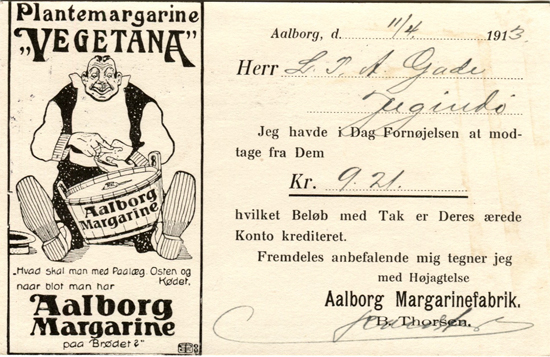 Plantemargarine
„VEGETANA”
Aalborg
Margarine
„Hvad skal man med Paalæg. Osten og
Kødet.
naar blot man har
Aalborg
Margarine
paa Brødet?”
Aalborg, d. 11/4 1913
Herr L. P. A. Gade
Jegindö
Jeg havde i Dag Fornøjelsen at mod-
tage fra Dem
Kr. 9.21.
hvilket Beløb med Tak er Deres ærede
Konto krediteret.
Fremdeles anbefalende mig tegner jeg
med Højagtelse
Aalborg Margarinefabrik.
B. Thorsen.